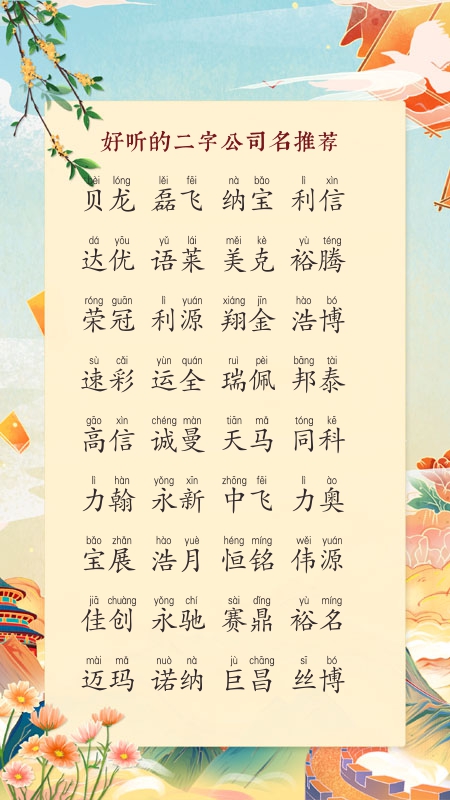 好听的二字公司名推荐
bèi lóng lěi fēi nà bǎo lì xìn
贝龙 磊飞 纳宝 利信
dá yōu yǔ lái měi kè yù téng
达优 语莱 美克 裕腾
róng guān lì yuán xiáng jīn hào bó
荣冠 利源 翔金 浩博
sù cǎi yùn quán ruì pèi bāng tài
速彩 运全 瑞佩 邦泰
gāo xìn chéng màn tiān mǎ tóng kē
高信 诚曼 天马 同科
lì hàn yǒng xīn zhōng fēi lì ào
力翰 永新 中飞 力奥
bǎo zhǎn hào yuè héng míng wěi yuán
宝展 浩月 恒铭 伟源
jiā chuàng yǒng chí sài dǐng yù míng
佳创 永驰 赛鼎 裕名
mài mǎ nuò nà jù chāng sī bó
迈玛 诺纳 巨昌 丝博